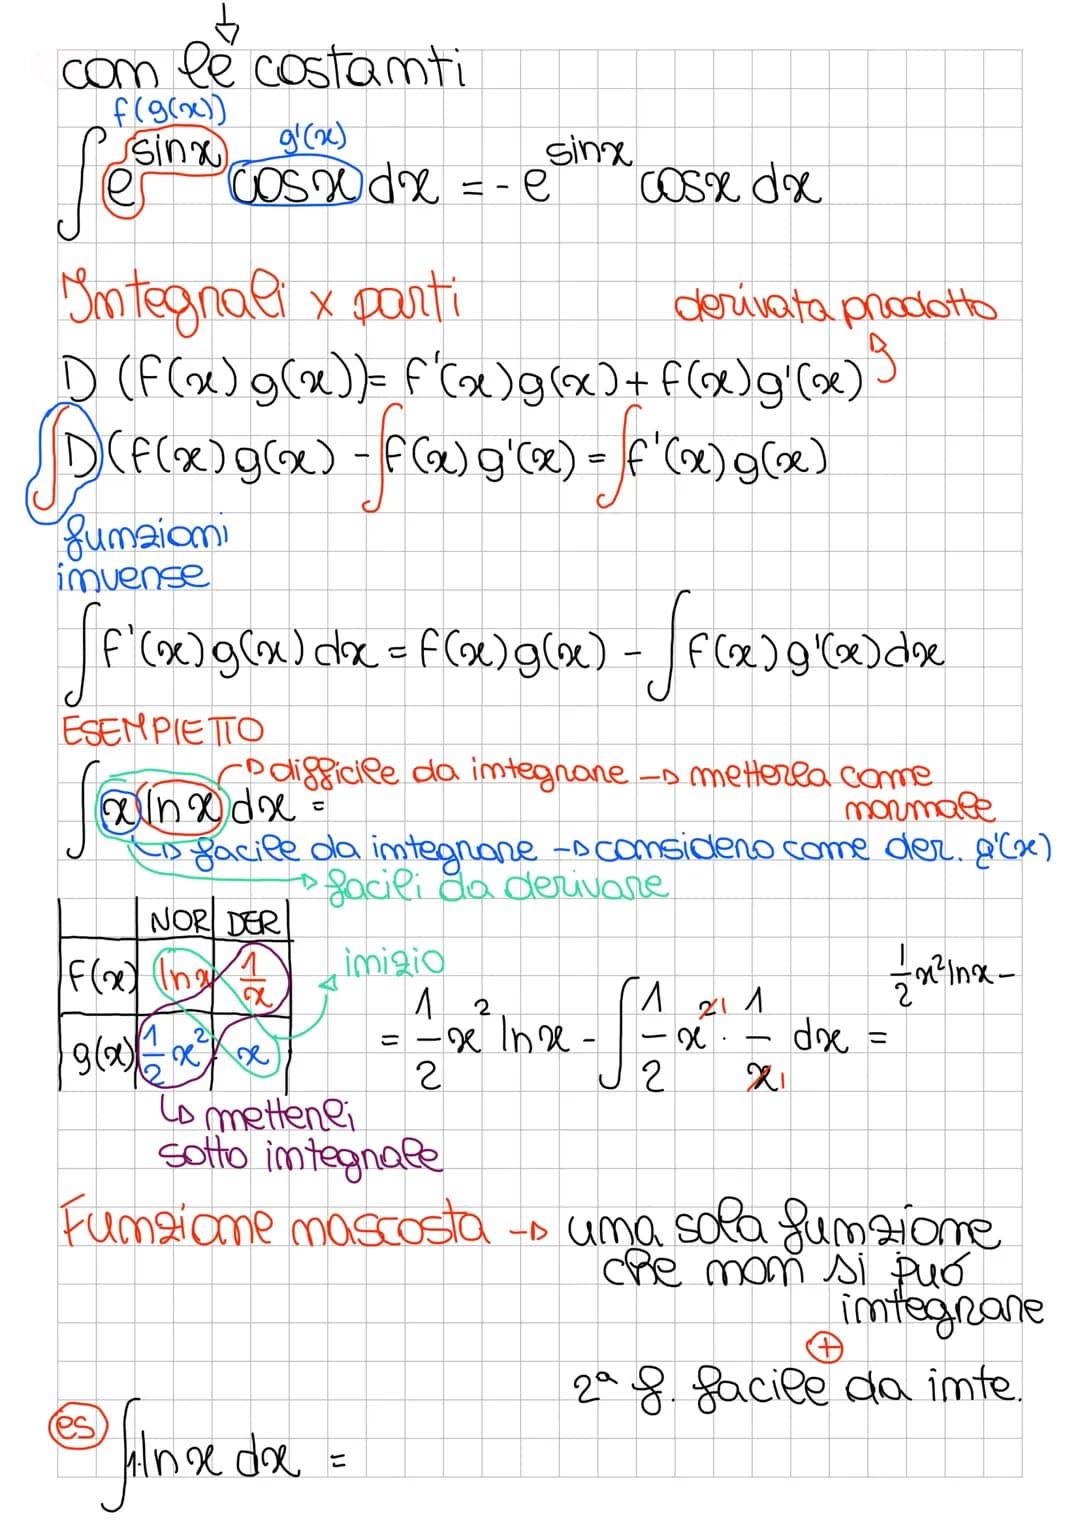 ↓
con le costanti
f(g(x)) g'(x)
∫ e^sinx cosx dx = - e^sinx cosx dx
Integrali x parti derivata prodotto
D (f(x) g(x))= f'(x)g(x)+ f(x)g'(x)
∫D(f(x)g(x) - ∫f(x)g'(x) = ∫f'(x)g(x)
funzioni
inverse
∫f'(x)g(x)dx = f(x)g(x) - ∫f(x)g'(x)dx
ESEMPIETTO
→ difficile da integrare → metterla come
normale
∫x lnx dx =
→ facile da integrare → considero come der. g'(x)
→ facili da derivare
NOR DER
f(x) lnx 1/x
g(x) 1/2 x² x
inizio
= 1/2 x² lnx - ∫ 1/2 x² 1 · 1/x 1 dx = 1/2 x² lnx -
→ metterei
sotto integrale
Funzione nascosta → una sola funzione
che non si può
integrare
+
2ª f. facile da inte.
es ∫1·lnx dx =